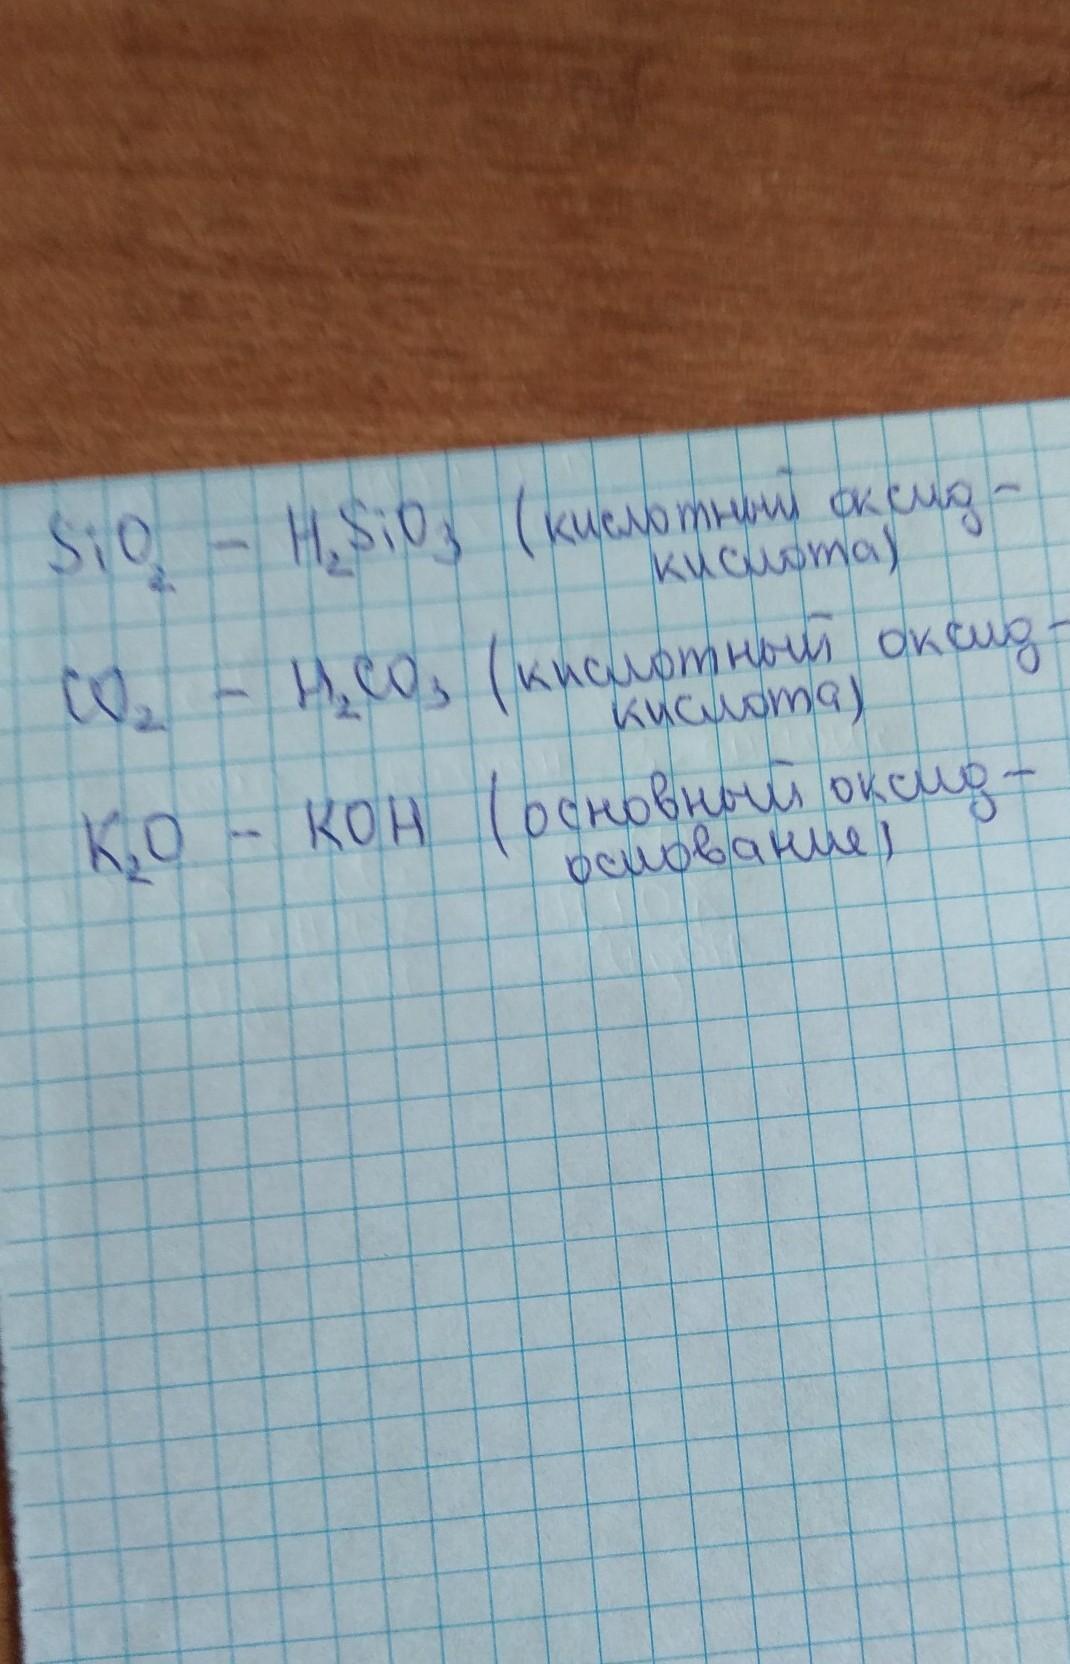 SiO₂ – H₂SiO₃ (кислотный оксид –
кислота)
CO₂ – H₂CO₃ (кислотный оксид –
кислота)
K₂O – KOH (основный оксид –
основание)